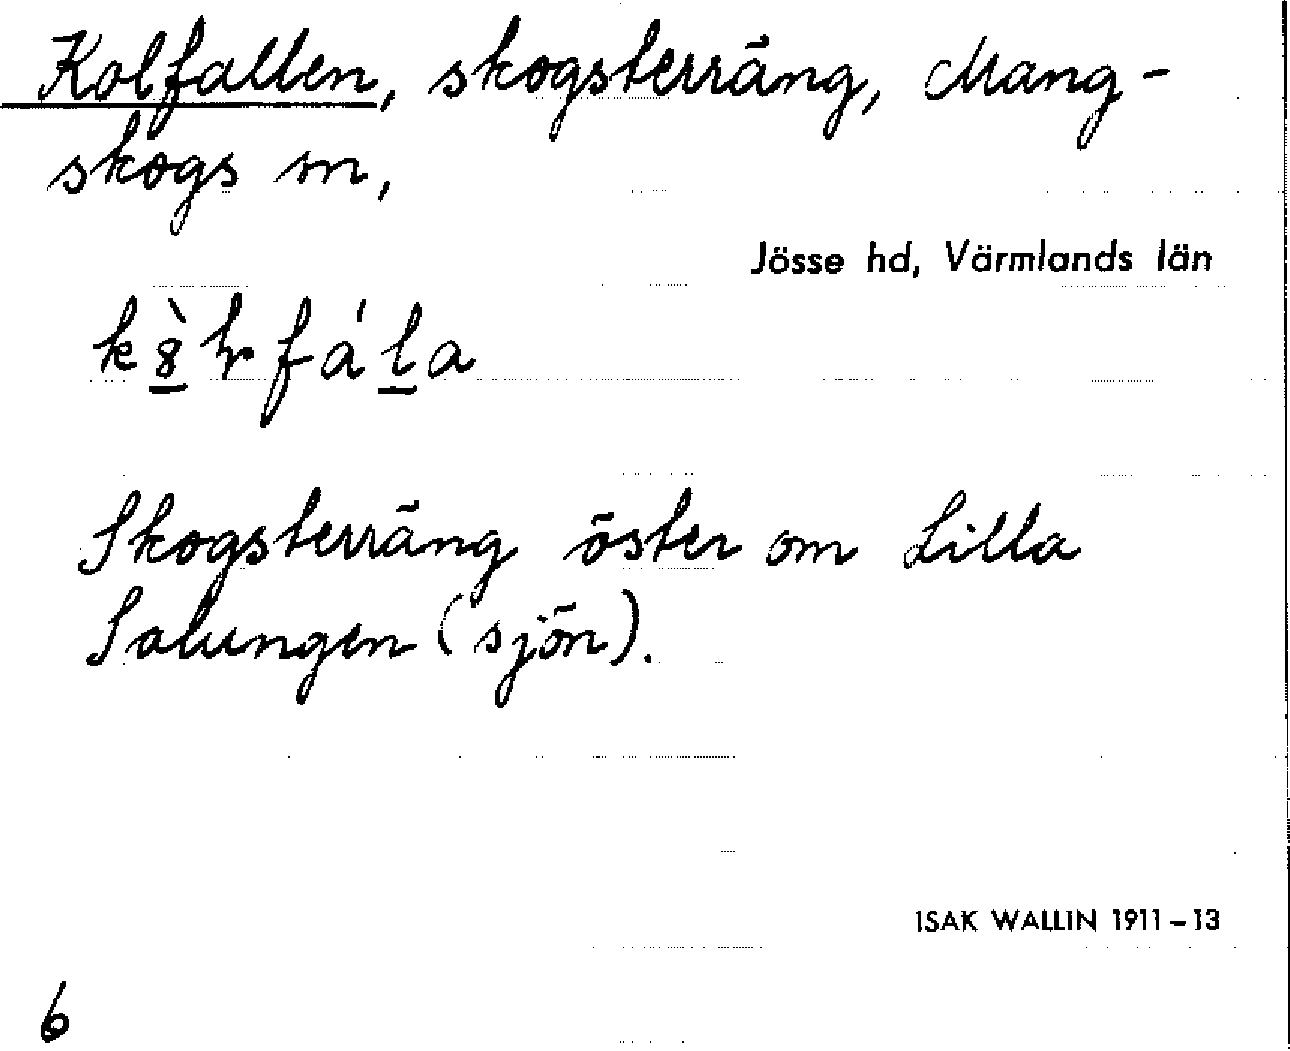 Kolfallen, skogsterräng, Mang-
skogs sn,
Jösse hd, Värmlands län
Skogsterräng öster om Lilla
Salungen (sjön).
ISAK WALLIN 1911-13
6